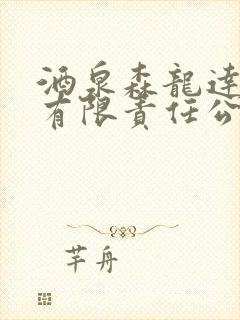 酒泉森龍達
有限責任公
芊舟